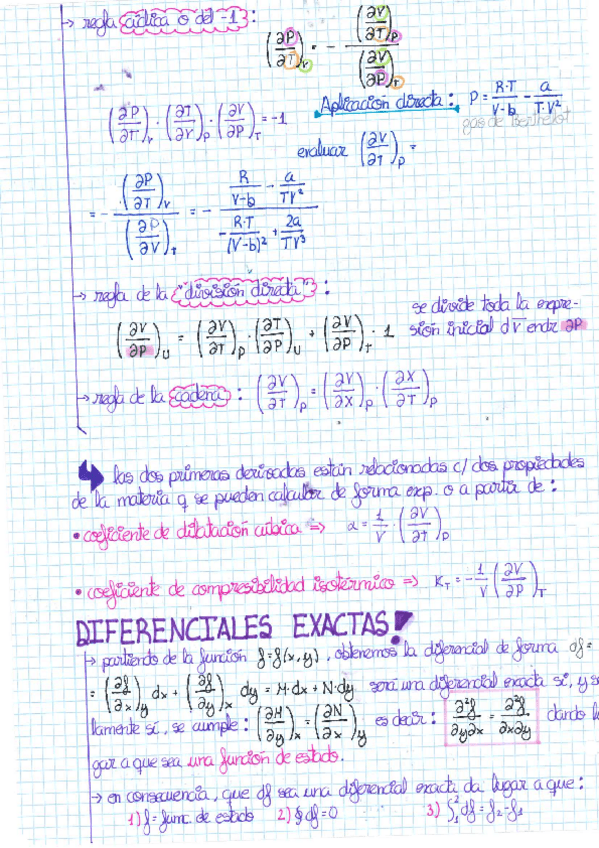 → regla cíclica o del -1 : (∂P/∂T)_V = - (∂V/∂T)_P / (∂V/∂P)_T
(∂P/∂T)_V · (∂T/∂V)_P · (∂V/∂P)_T = -1
Aplicación directa: P = R·T/(V-b) - a/(T·V²)
gas de Berthelot
evaluar (∂V/∂T)_P =
= - (∂P/∂T)_V / (∂P/∂V)_T = - (R/(V-b) - a/(TV²)) / (-R·T/(V-b)² + 2a/(TV³))
→ regla de la "división directa" :
(∂V/∂P)_U = (∂V/∂T)_P · (∂T/∂P)_U + (∂V/∂P)_T · 1
se divide toda la expre-
sión inicial dV entre ∂P
→ regla de la cadena : (∂V/∂T)_P = (∂V/∂X)_P · (∂X/∂T)_P
las dos primeras derivadas están relacionadas c/ dos propiedades
de la materia q se pueden calcular de forma exp. o a partir de :
• coeficiente de dilatación cúbica => α = 1/V · (∂V/∂t)_P
• coeficiente de compresibilidad isotérmico => K_T = - 1/V (∂V/∂P)_T
DIFERENCIALES EXACTAS!
→ partiendo de la función f=f(x,y), obtenemos la diferencial de forma df=
= (∂f/∂x)_y dx + (∂f/∂y)_x dy = M·dx + N·dy será una diferencial exacta si, y so
lamente si, se cumple: (∂M/∂y)_x = (∂N/∂x)_y es decir : ∂²f/∂y∂x = ∂²f/∂x∂y dando lu
gar a que sea una función de estado.
→ en consecuencia, que df sea una diferencial exacta da lugar a que :
1) f = func. de estado 2) ∮df = 0 3) ∫₁² df = f₂ - f₁